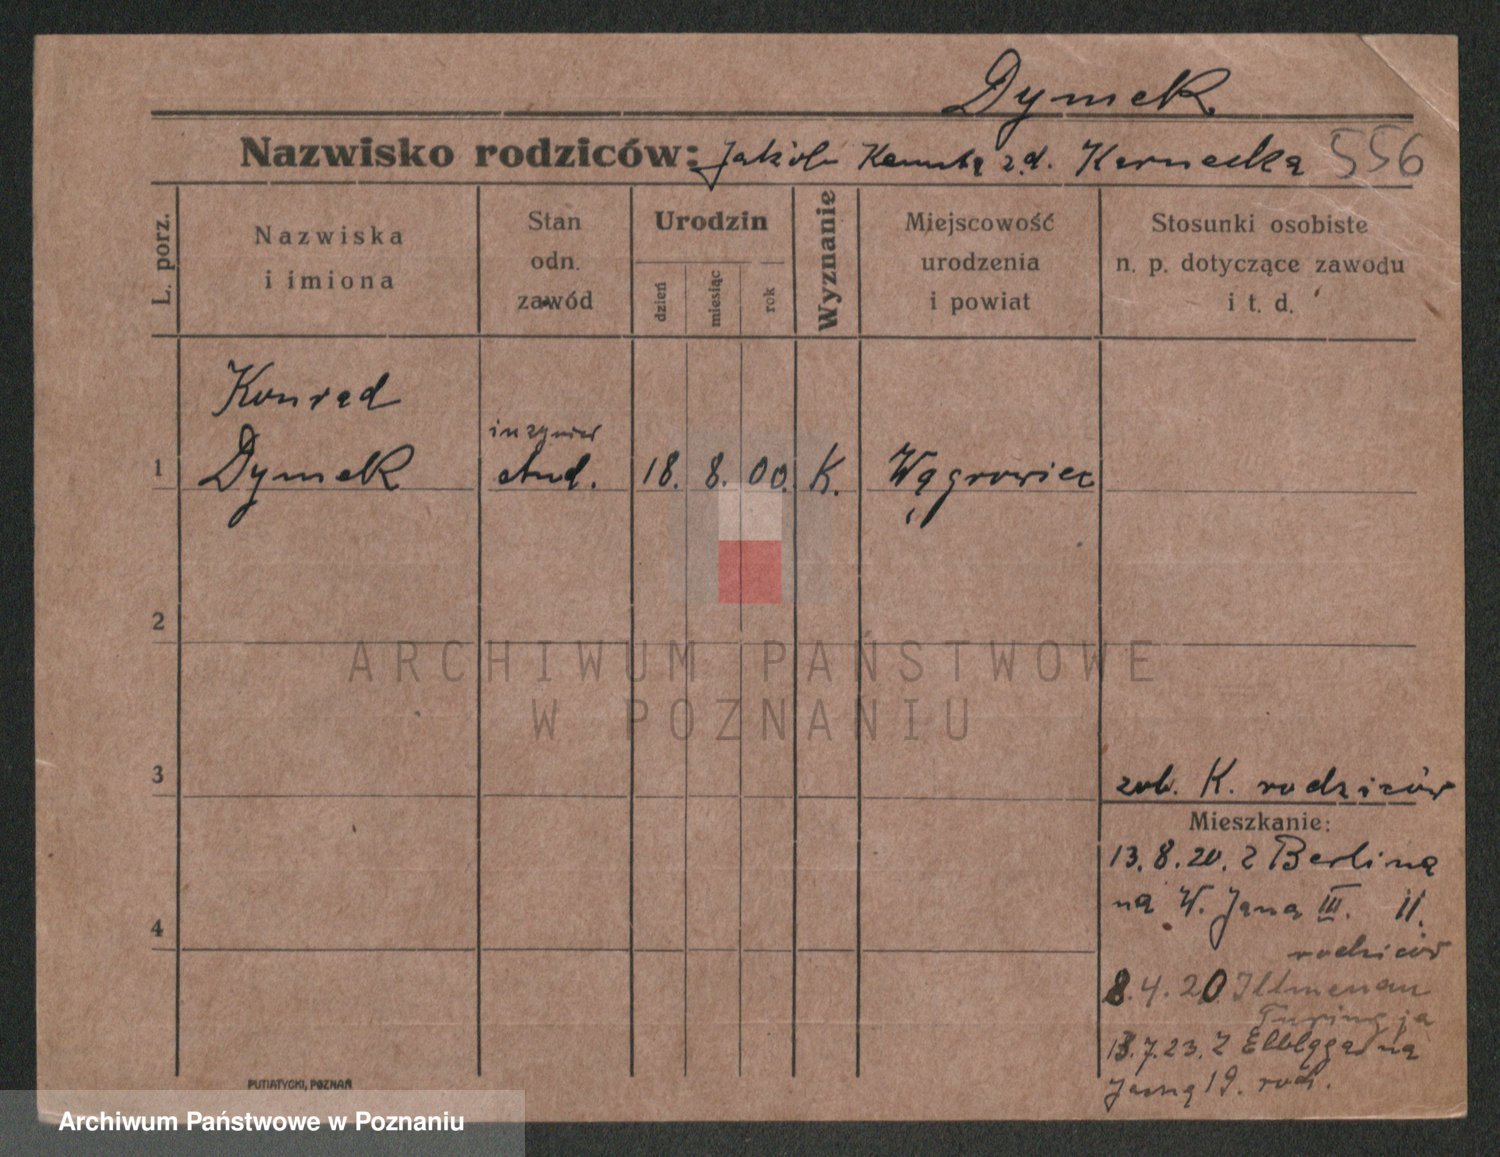 Dymek
Nazwisko rodziców: Jakób z.d. Karnecka 556
L. porz.
Nazwiska
i imiona
Stan
odn.
zawód
Urodzin
dzień
miesiąc
rok
Wyznanie
Miejscowość
urodzenia
i powiat
Stosunki osobiste
n. p. dotyczące zawodu
i t. d.
Konrad
inżynier
1 Dymek stud. 18. 8. 00. K. Wągrowiec
2
ARCHIWUM PAŃSTWOWE
W POZNANIU
3
zob. K. rodziców
Mieszkanie:
13.8.20. z Berlina
na W. Jana III. 11.
4
rodziców
8.4.20 Illmenau
Turingja
13.7.23. z Elbląga na
Jana 19. rodz.
PUTIATYCKI, POZNAŃ
Archiwum Państwowe w Poznaniu